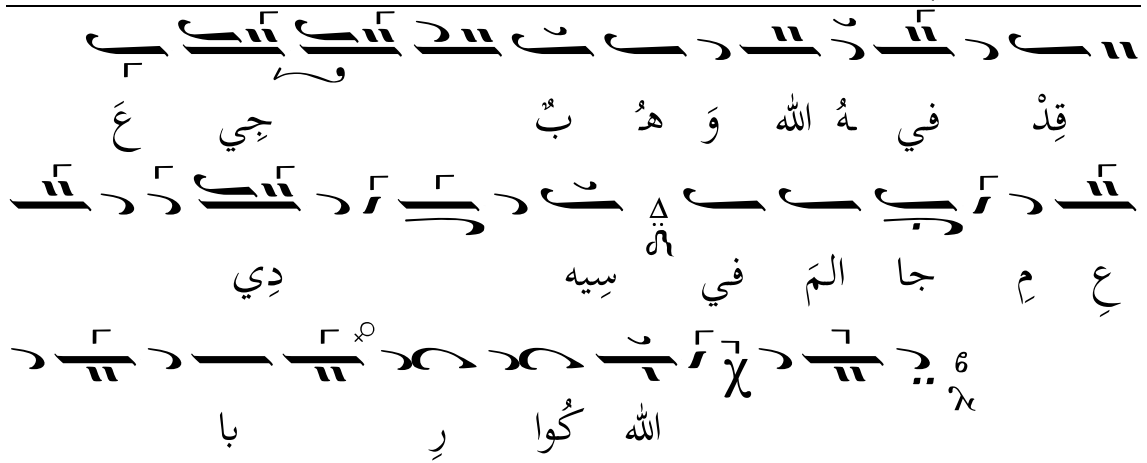 قِدْ في ـهُ الله وَ هـُ بٌ جِي عَ
عِ مِ جا المَ في سِيه دِي
الله كُوا رِ با